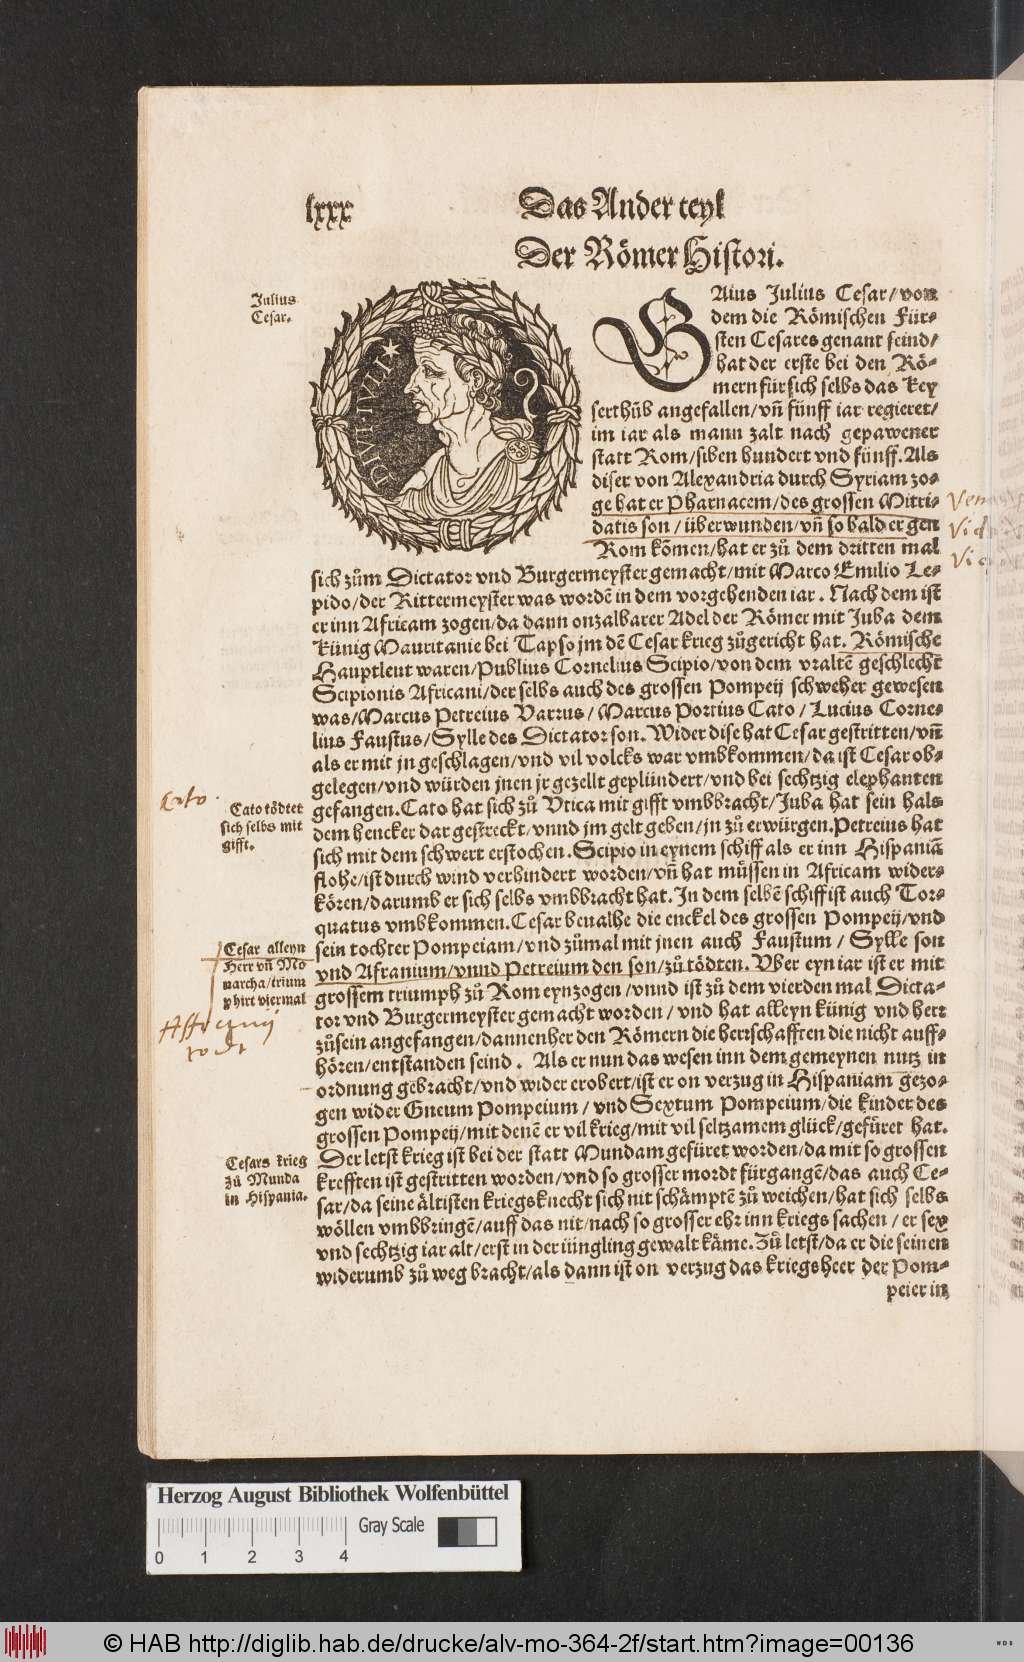 lxxx
Das Ander teyl
Der Römer Histori.
Julius
Cesar.
DIVI IVLI
GAius Julius Cesar/von
dem die Römischen Für-
sten Cesares genant seind/
hat der erste bei den Rö-
mern für sich selbs das key
serthůb angefallen/vñ fünff iar regieret/
im iar als mann zalt nach gepawener
statt Rom/siben hundert vnd fünff. Als
diser von Alexandria durch Syriam zo-
ge hat er Pharnacem/des grossen Mitri-
datis son/überwunden/vñ so bald er gen
Rom kõmen/hat er zů dem dritten mal
Veni
Vidi
Vic
sich zům Dictator vnd Burgermeyster gemacht/mit Marco Emilio Le-
pido/der Rittermeyster was wordẽ in dem vorgehenden iar. Nach dem ist
er inn Africam zogen/da dann onzalbarer Adel der Römer mit Juba dem
künig Mauritanie bei Tapso jm dẽ Cesar krieg zůgericht hat. Römische
Hauptleut waren/Publius Cornelius Scipio/von dem vraltẽ geschlecht
Scipionis Africani/der selbs auch des grossen Pompeij schweher gewesen
was/Marcus Petreius Varrus/Marcus Portius Cato/Lucius Corne-
lius Faustus/Sylle des Dictator son. Wider dise hat Cesar gestritten/vñ
als er mit jn geschlagen/vnd vil volcks war vmbkommen/da ist Cesar ob-
gelegen/vnd würden jnen jr gezellt geplündert/vnd bei sechtzig elephanten
gefangen. Cato hat sich zů Vtica mit gifft vmbbracht/Juba hat sein hals
dem hencker dar gestreckt/vnnd jm gelt geben/jn zů erwürgen. Petreius hat
sich mit dem schwert erstochen. Scipio in eynem schiff als er inn Hispaniã
flohe/ist durch wind verhindert worden/vñ hat müssen in Africam wider-
kören/darumb er sich selbs vmbbracht hat. In dem selbẽ schiff ist auch Tor-
quatus vmbkommen. Cesar benalhe die enckel des grossen Pompeij/vnd
sein tochter Pompeiam/vnd zůmal mit jnen auch Faustum/Sylle son
vnd Afranium/vnnd Petreium den son/zů tödten. Vber eyn iar ist er mit
grossem triumph zů Rom eynzogen/vnnd ist zů dem vierden mal Dicta-
tor vnd Burgermeyster gemacht worden/vnd hat alleyn künig vnd herr
zůsein angefangen/dannenher den Römern die herrschafften die nicht auff-
hören/entstanden seind. Als er nun das wesen inn dem gemeynen nutz in
ordnung gebracht/vnd wider erobert/ist er on verzug in Hispaniam gezo-
gen wider Gneum Pompeium/vnd Sextum Pompeium/die kinder des
grossen Pompeij/mit denẽ er vil krieg/mit vil seltzamem glück/gefüret hat.
Der letst krieg ist bei der statt Mundam gefüret worden/da mit so grossen
krefften ist gestritten worden/vnd so grosser mordt fürgangẽ/das auch Ce-
sar/da seine ältisten kriegsknecht sich nit schämptẽ zů weichen/hat sich selbs
wöllen vmbbringẽ/auff das nit/nach so grosser ehr inn kriegs sachen/er sex
vnd sechtzig iar alt/erst in der iüngling gewalt käme. Zů letst/da er die seinen
widerumb zů weg bracht/als dann ist on verzug das kriegsheer der Pom-
peier in
Cato.
Cato tödtet
sich selbs mit
gifft.
Cesar alleyn
Herr vñ Mo
narcha/trium
phirt viermal
Affranij
todt
Cesars krieg
zů Munda
in Hispania.
Herzog August Bibliothek Wolfenbüttel
Gray Scale
0 1 2 3 4
© HAB http://diglib.hab.de/drucke/alv-mo-364-2f/start.htm?image=00136